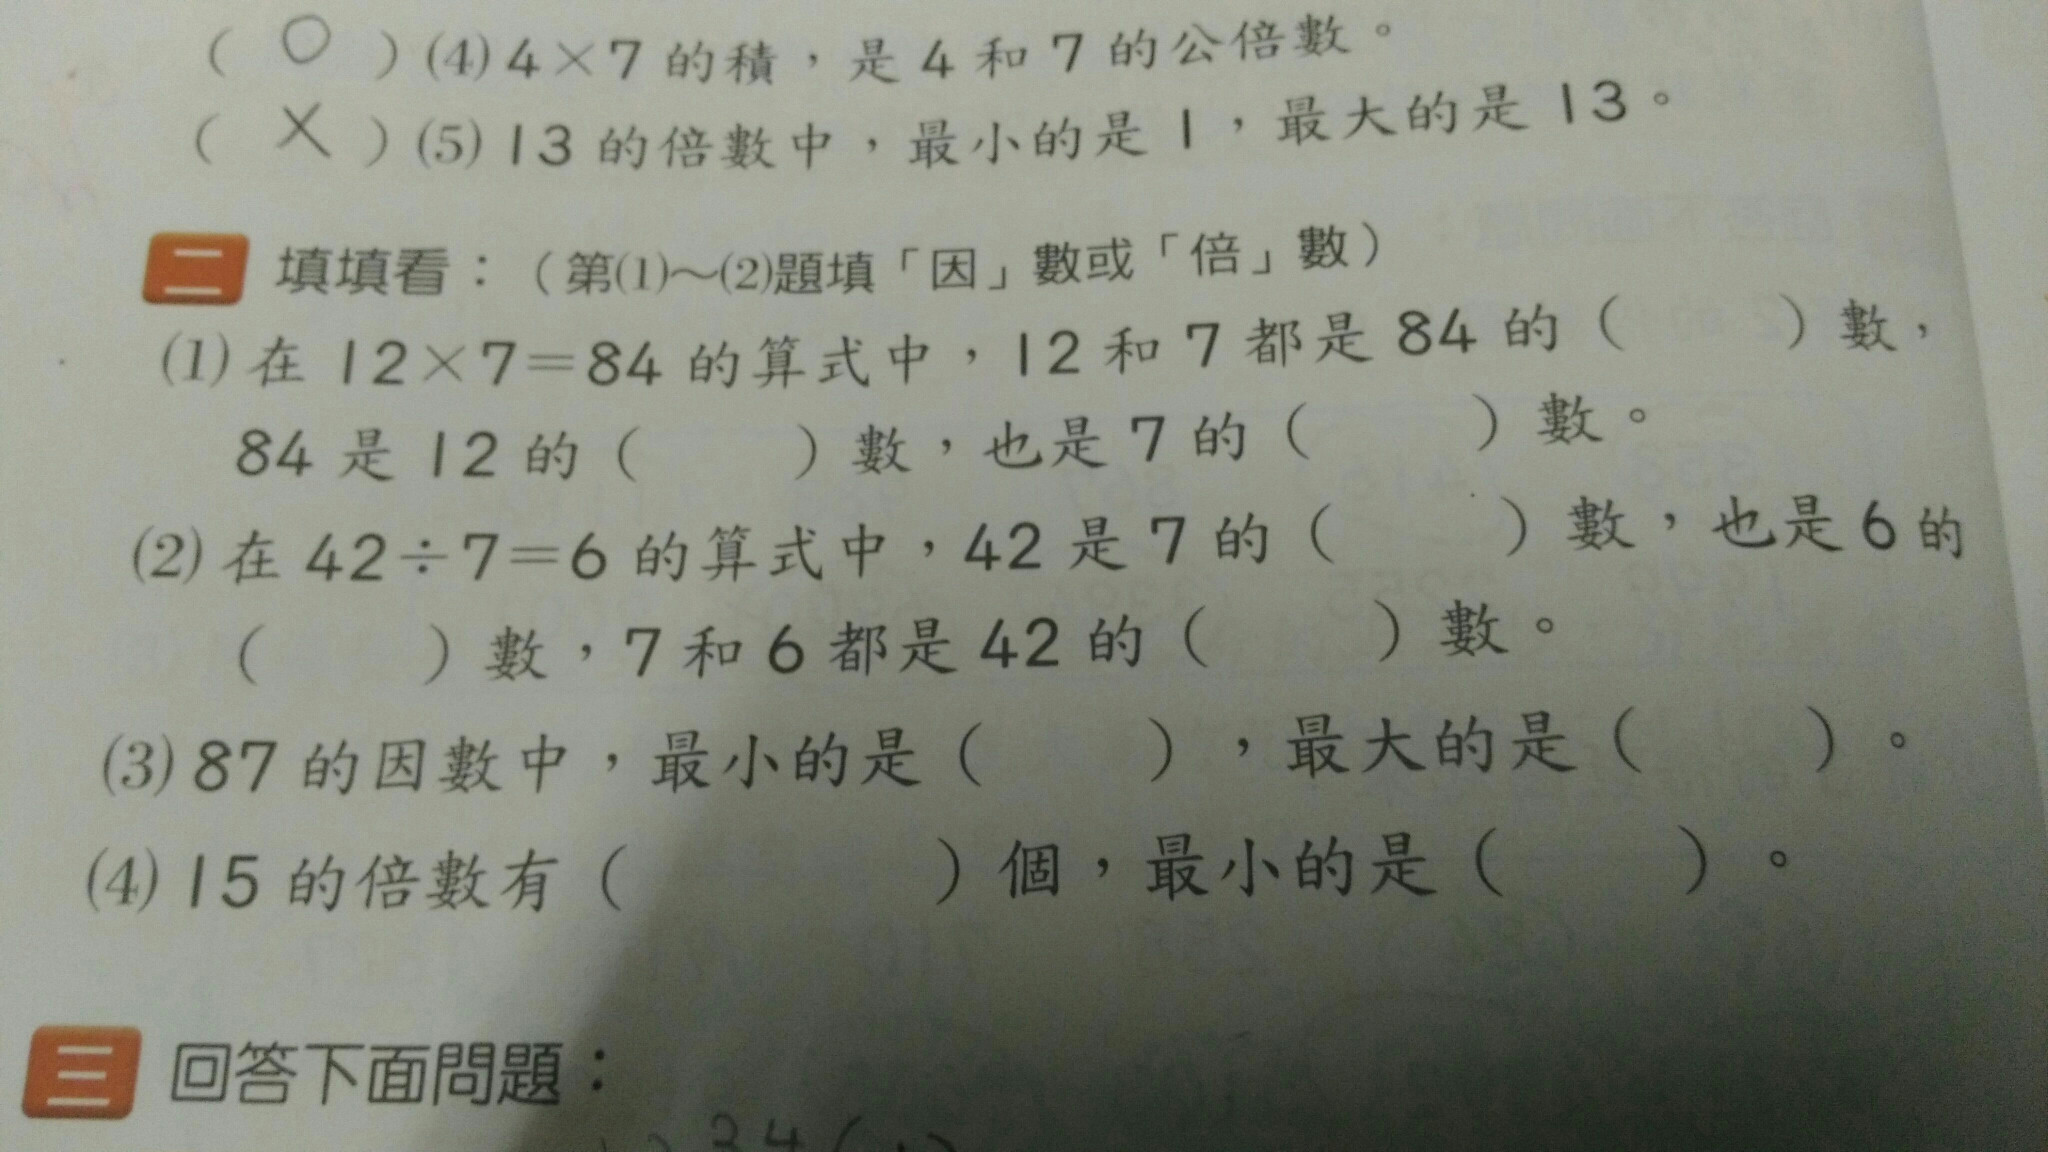 ( ○ )(4) 4×7 的積，是 4 和 7 的公倍數。
( × )(5) 13 的倍數中，最小的是 1，最大的是 13。
二 填填看：（第(1)～(2)題填「因」數或「倍」數）
(1) 在 12×7＝84 的算式中，12 和 7 都是 84 的（　　）數，
84 是 12 的（　　）數，也是 7 的（　　）數。
(2) 在 42÷7＝6 的算式中，42 是 7 的（　　）數，也是 6 的
（　　）數，7 和 6 都是 42 的（　　）數。
(3) 87 的因數中，最小的是（　　），最大的是（　　）。
(4) 15 的倍數有（　　　）個，最小的是（　　）。
三 回答下面問題：